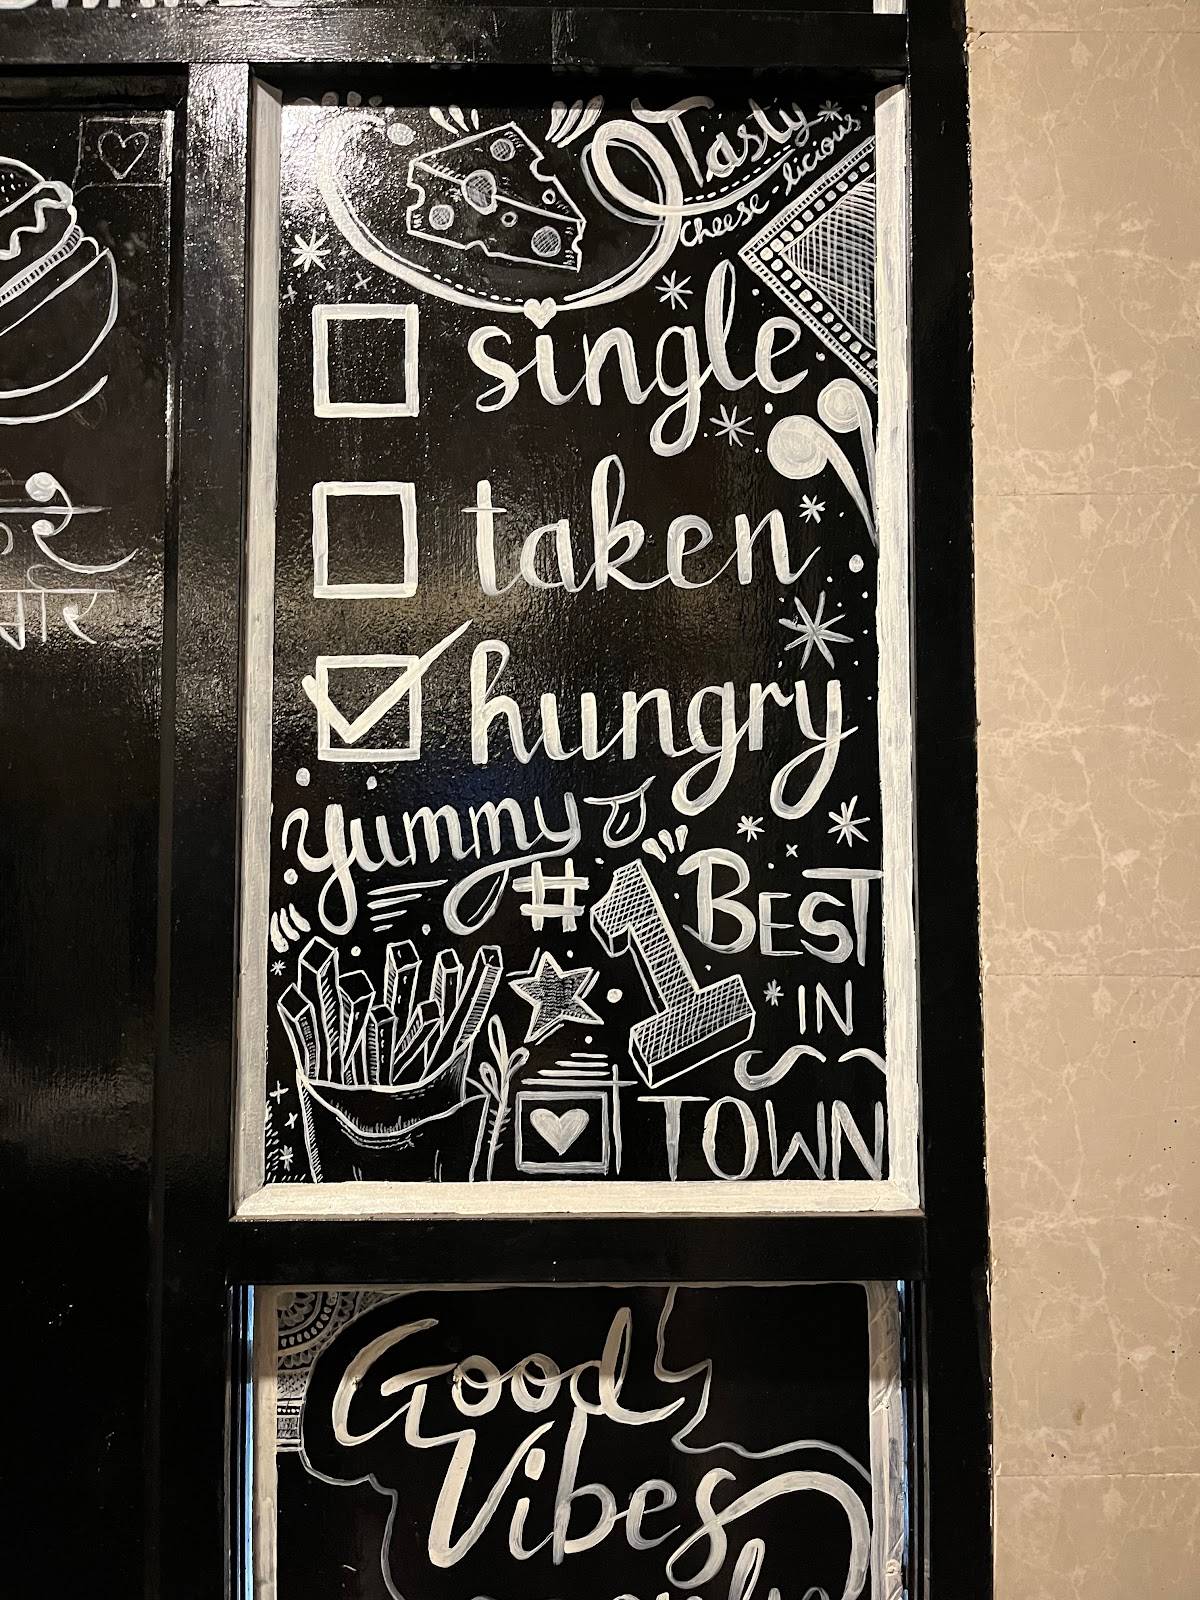 Tasty
cheese-licious
single
taken
hungry
yummy
#1 BEST
IN
TOWN
Good
Vibes
only